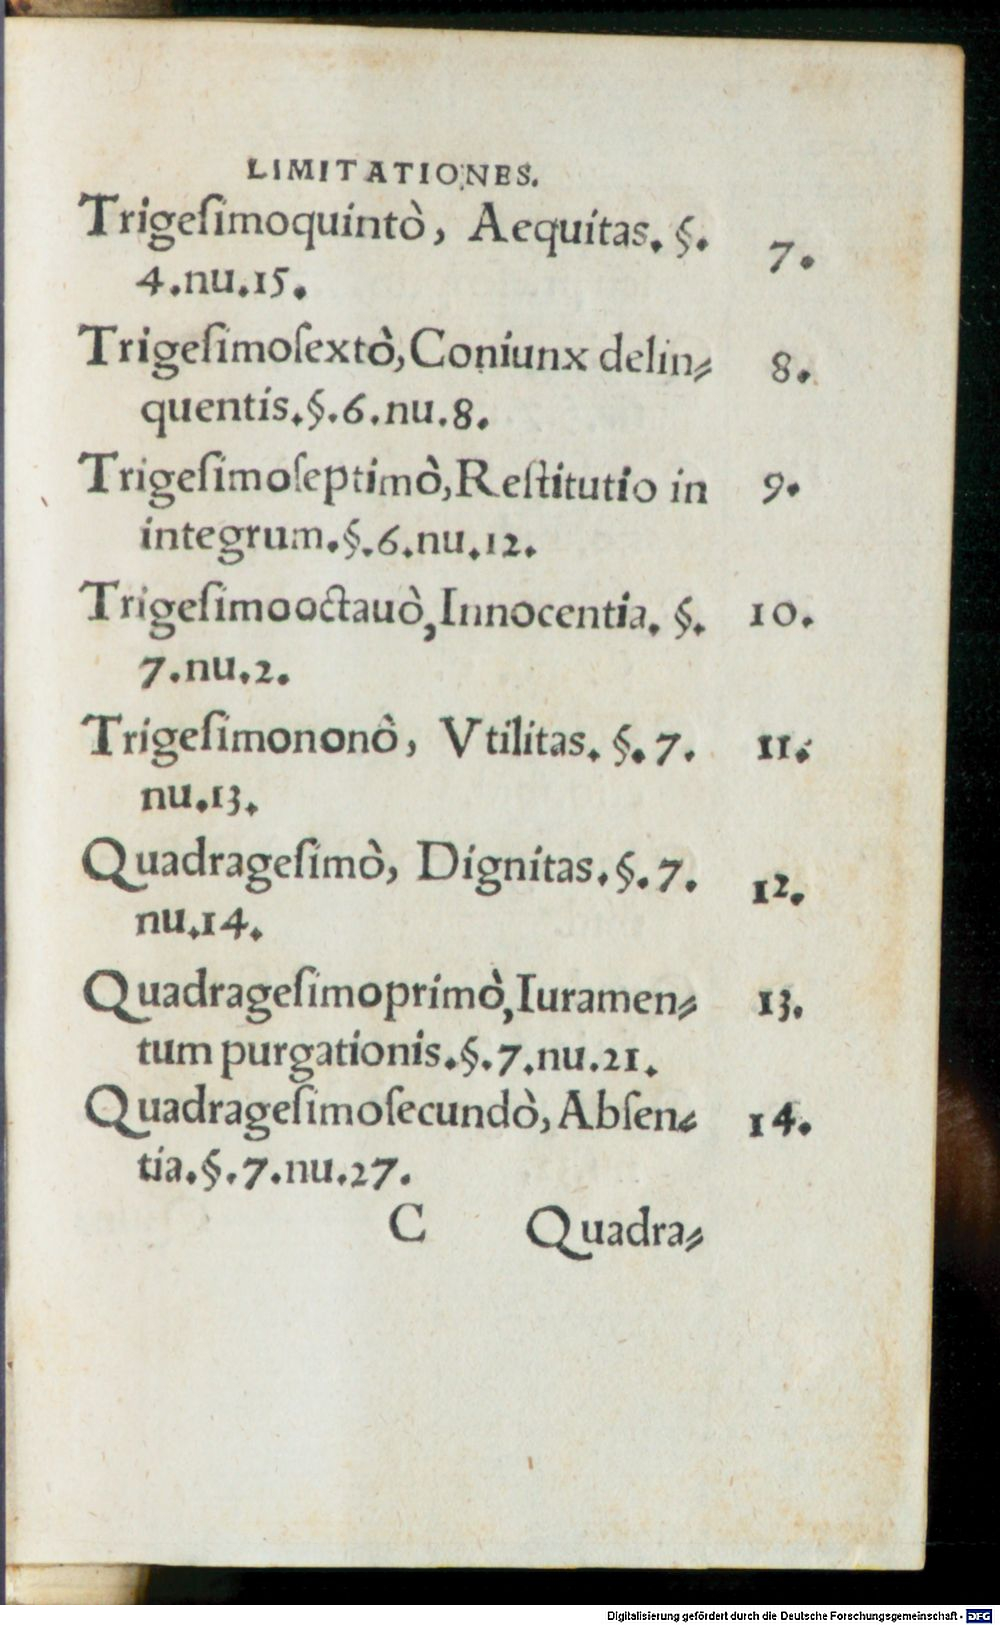 LIMITATIONES.
Trigeſimoquintò, Aequitas. §. 7.
4.nu.15.
Trigeſimoſextò, Coniunx delin⸗ 8.
quentis.§.6.nu.8.
Trigeſimoſeptimò, Reſtitutio in 9.
integrum.§.6.nu.12.
Trigeſimooctauò, Innocentia. §. 10.
7.nu.2.
Trigeſimononò, Vtilitas. §.7. 11.
nu.13.
Quadrageſimò, Dignitas.§.7. 12.
nu.14.
Quadrageſimoprimò, Iuramen⸗ 13.
tum purgationis.§.7.nu.21.
Quadrageſimoſecundò, Abſen⸗ 14.
tia.§.7.nu.27.
C Quadra⸗
Digitalisierung gefördert durch die Deutsche Forschungsgemeinschaft - DFG